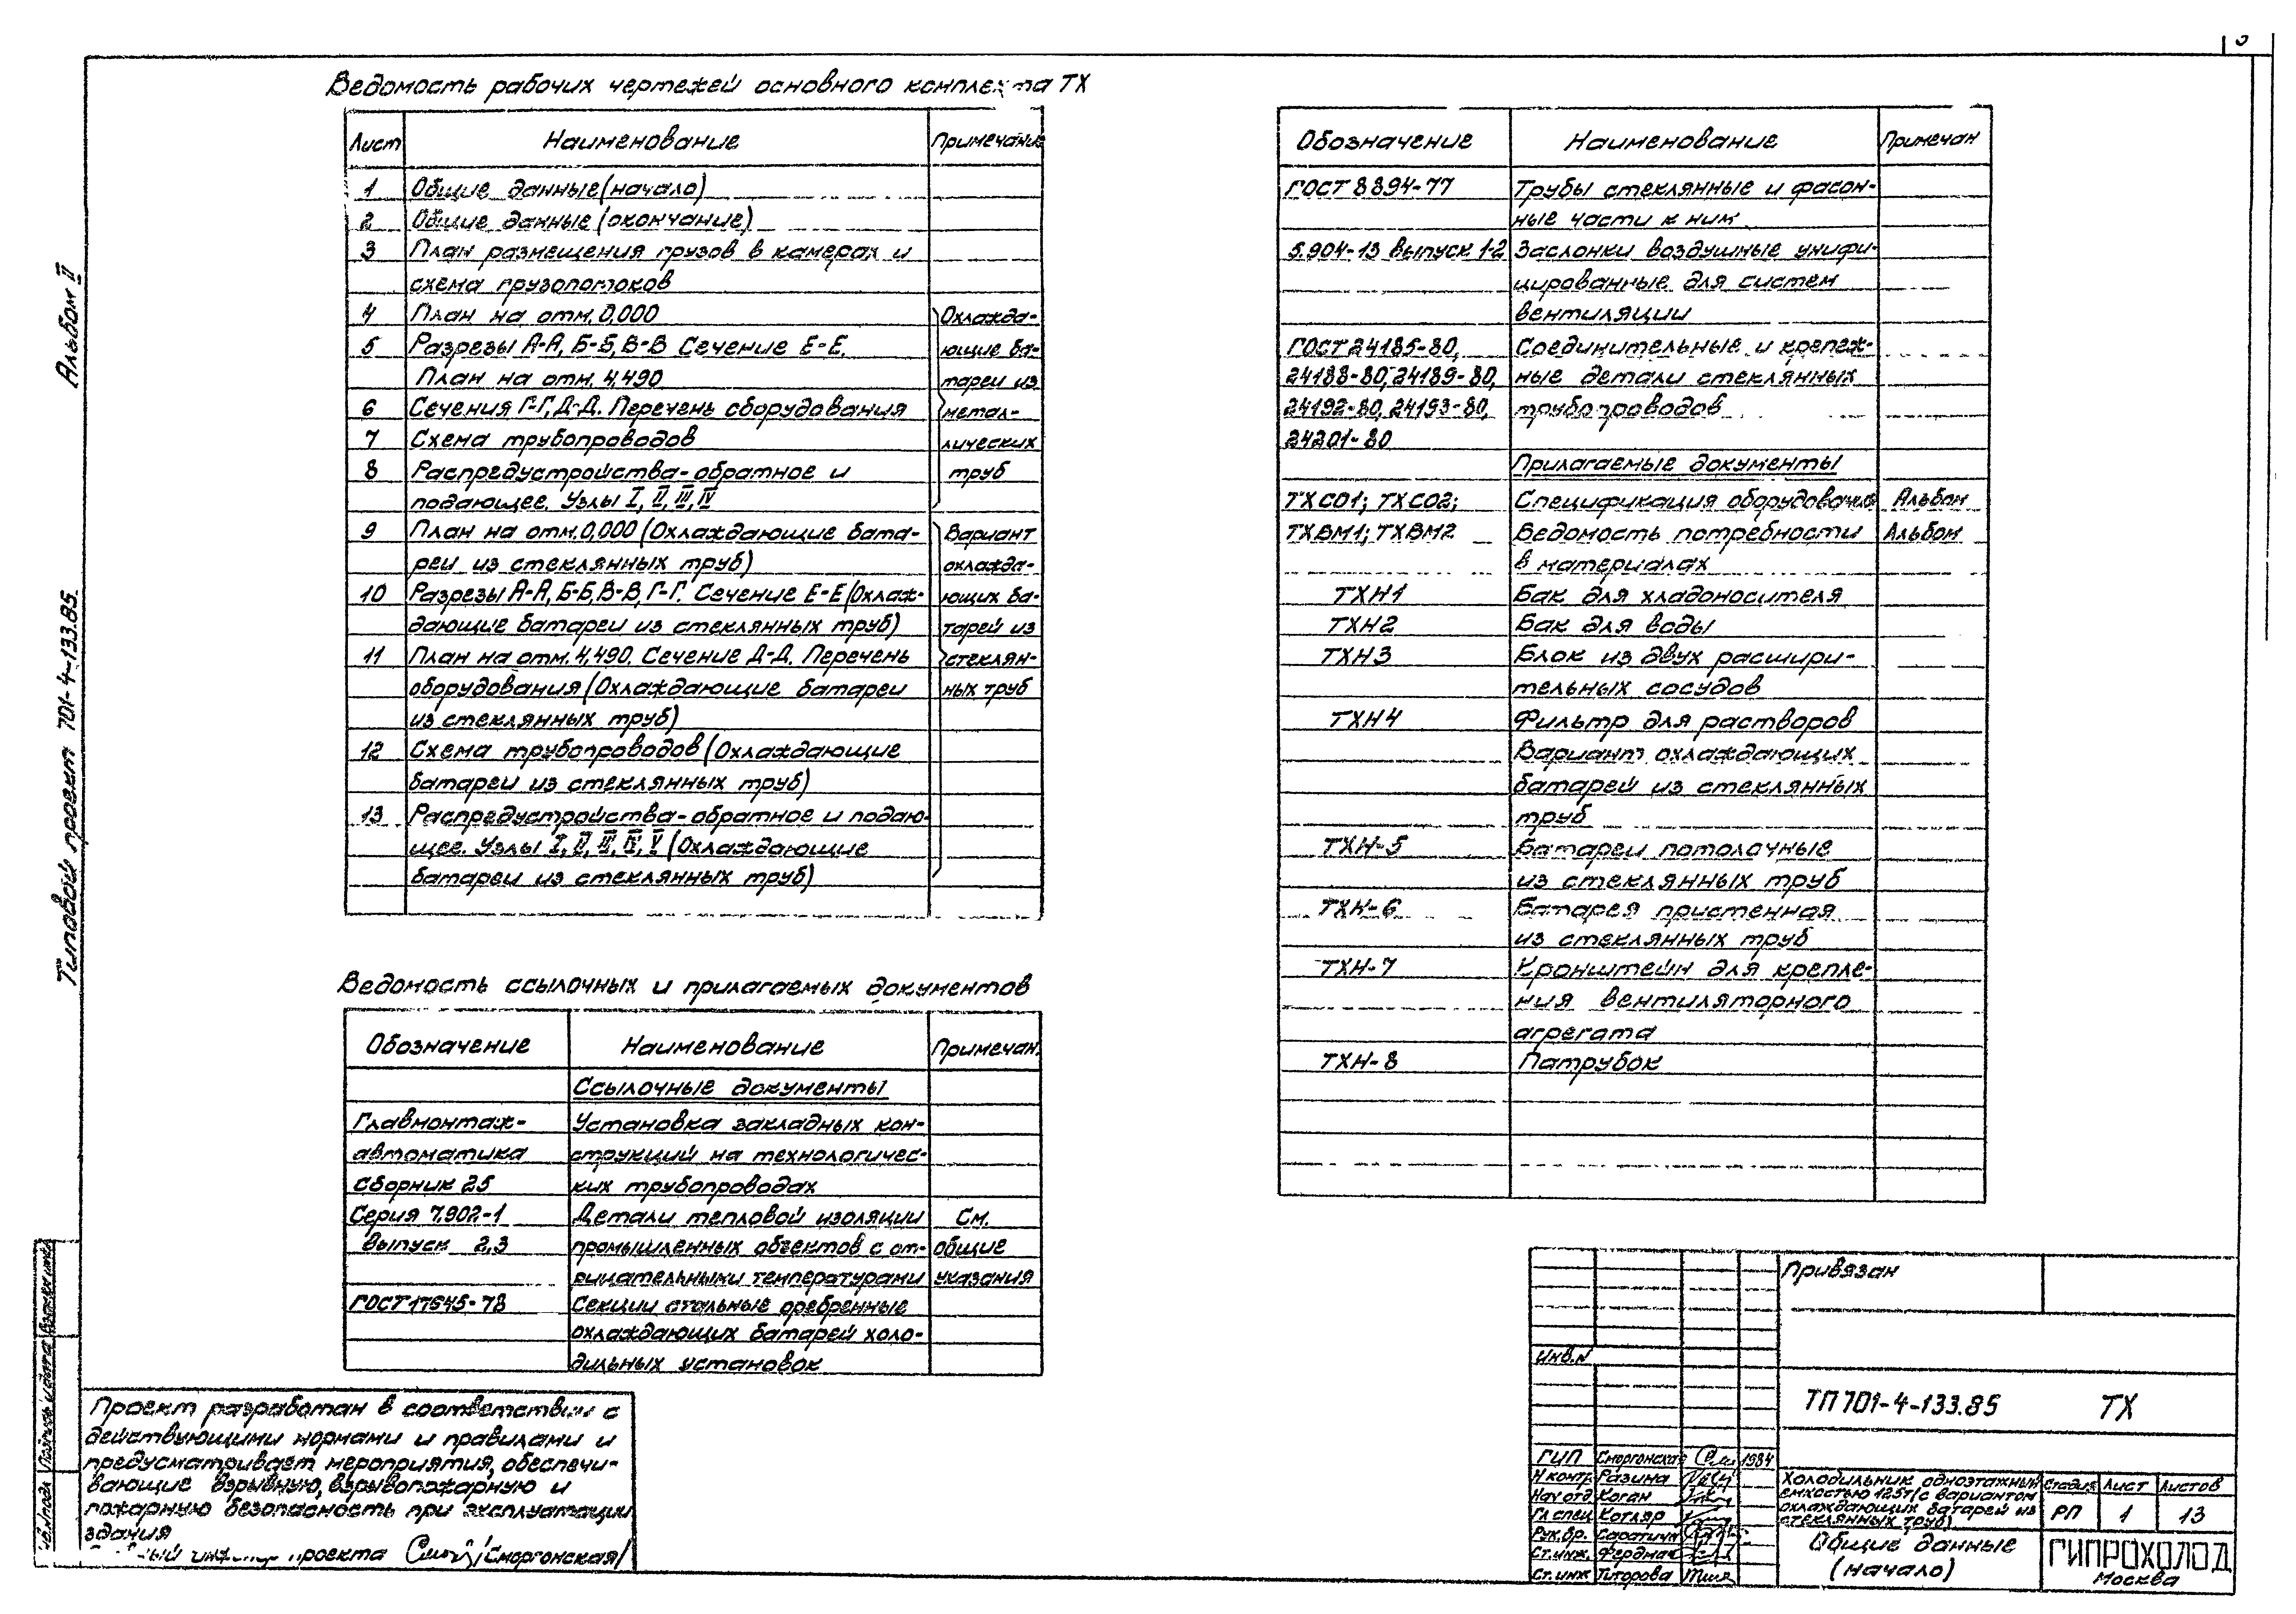 Альбом II
Типовой проект 701-4-133.85.
Ведомость рабочих чертежей основного комплекта ТХ
Лист Наименование Примечание
1 Общие данные (начало)
2 Общие данные (окончание)
3 План размещения грузов в камерах и
схема грузопотоков
4 План на отм. 0,000 Охлажда-
5 Разрезы А-А, Б-Б, В-В Сечение Е-Е. ющие ба-
План на отм. 4,490 тареи из
6 Сечения Г-Г, Д-Д. Перечень оборудования метал-
7 Схема трубопроводов лических
8 Распредустройства-обратное и труб
подающее. Узлы I, II, III, IV
9 План на отм. 0,000 (Охлаждающие бата- Вариант
реи из стеклянных труб) охлажда-
10 Разрезы А-А, Б-Б, В-В, Г-Г. Сечение Е-Е (Охлаж- ющих ба-
дающие батареи из стеклянных труб) тарей из
11 План на отм. 4,490. Сечение Д-Д. Перечень стеклян-
оборудования (Охлаждающие батареи ных труб
из стеклянных труб)
12 Схема трубопроводов (Охлаждающие
батареи из стеклянных труб)
13 Распредустройства-обратное и подаю-
щее. Узлы I, II, III, IV, V (Охлаждающие
батареи из стеклянных труб)
Ведомость ссылочных и прилагаемых документов
Обозначение Наименование Примечан.
Ссылочные документы
Главмонтаж- Установка закладных кон-
автоматика струкций на технологичес-
Сборник 25 ких трубопроводах
Серия 7.902-1 Детали тепловой изоляции См.
Выпуск 2,3 промышленных объектов с от- общие
рицательными температурами указания
ГОСТ 17645-78 Секции стальные оребренные
охлаждающих батарей холо-
дильных установок
Проект разработан в соответствии с
действующими нормами и правилами и
предусматривает мероприятия, обеспечи-
вающие взрывную, взрывопожарную и
пожарную безопасность при эксплуатации
здания
проекта /Сморгонская/
Обозначение Наименование Примечан
ГОСТ 8894-77 Трубы стеклянные и фасон-
ные части к ним
5.904-13 выпуск 1-2 Заслонки воздушные унифи-
цированные для систем
вентиляции
ГОСТ 24185-80, Соединительные и крепеж-
24188-80, 24189-80, ные детали стеклянных
24192-80, 24193-80, трубопроводов
24201-80
Прилагаемые документы
ТХСО1; ТХСО2; Спецификация оборудования Альбом
ТХВМ1; ТХВМ2 Ведомость потребности Альбом
в материалах
ТХН1 Бак для хладоносителя
ТХН2 Бак для воды
ТХН3 Блок из двух расшири-
тельных сосудов
ТХН4 Фильтр для растворов
Вариант охлаждающих
батарей из стеклянных
труб
ТХН-5 Батареи потолочные
из стеклянных труб
ТХН-6 Батарея пристенная
из стеклянных труб
ТХН-7 Кронштейн для крепле-
ния вентиляторного
агрегата
ТХН-8 Патрубок
Привязан
Инв.N
ТП 701-4-133.85 ТХ
ГИП Сморгонская 1984
Н контр. Разина
Нач отд Коган
Гл спец Котляр
Рук.бр.
Ст.инж.
Ст.инж Титорова
Холодильник одноэтажный
емкостью 125т (с вариантом
охлаждающих батарей из
стеклянных труб)
Стадия Лист Листов
РП 1 13
Общие данные
(начало)
ГИПРОХОЛОД
Москва
Инв.N подл. Подпись и дата Взамен инв.